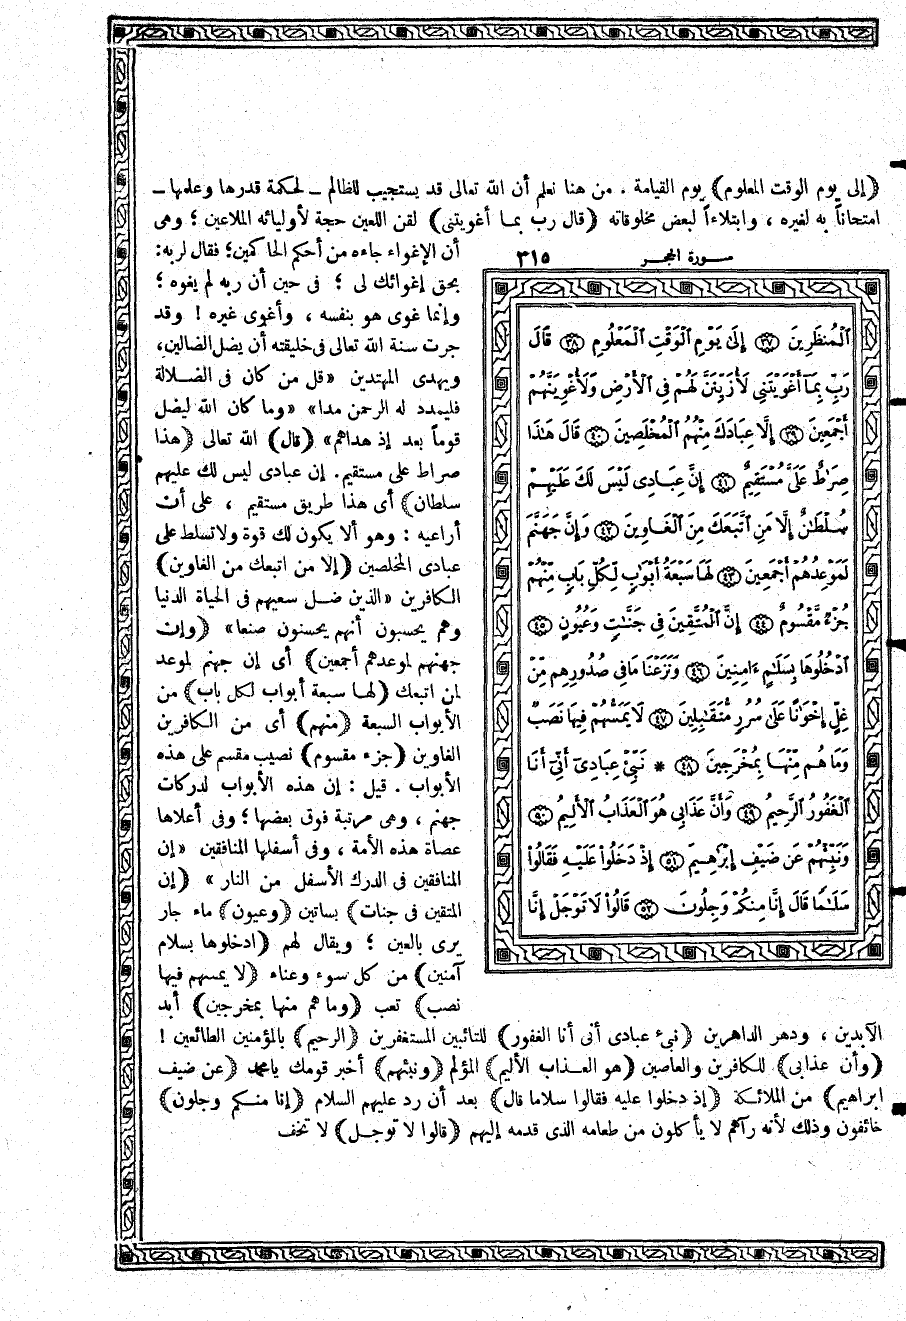 (إلى يوم الوقت المعلوم) يوم القيامة . من هنا نعلم أن الله تعالى قد يستجيب للظالم ــ لحكمة قدرها وعلمها ــ
امتحاناً به لغيره ، وابتلاءاً لبعض مخلوقاته (قال رب بما أغويتنى) لقن اللعين حجة لأوليائه الملاعين ؛ وهى
أن الإغواء جاءه من أحكم الحاكمين؛ فقال لربه:
بحق إغوائك لى ؛ فى حين أن ربه لم يغوه ؛
وإنما غوى هو بنفسه ، وأغوى غيره ! وقد
جرت سنة الله تعالى فى خليقته أن يضل الضالين،
ويهدى المهتدين «قل من كان فى الضلالة
فليمدد له الرحمن مدا» «وما كان الله ليضل
قوماً بعد إذ هداهم» (قال) الله تعالى (هذا
صراط على مستقيم. إن عبادى ليس لك عليهم
سلطان) أى هذا طريق مستقيم ، على أن
أراعيه : وهو ألا يكون لك قوة ولا تسلط على
عبادى المخلصين (إلا من اتبعك من الغاوين)
الكافرين «الذين ضل سعيهم فى الحياة الدنيا
وهم يحسبون أنهم يحسنون صنعا» (وإن
جهنم لموعدهم أجمعين) أى إن جهنم لموعد
لمن اتبعك (لها سبعة أبواب لكل باب) من
الأبواب السبعة (منهم) أى من الكافرين
الغاوين (جزء مقسوم) نصيب مقسم على هذه
الأبواب . قيل : إن هذه الأبواب لدركات
جهنم ، وهى مرتبة فوق بعضها ؛ وفى أعلاها
عصاة هذه الأمة ، وفى أسفلها المنافقين «إن
المنافقين فى الدرك الأسفل من النار» (إن
المتقين فى جنات) بساتين (وعيون) ماء جار
يرى بالعين ؛ ويقال لهم (ادخلوها بسلام
آمنين) من كل سوء وعناء (لا يمسهم فيها
نصب) تعب (وما هم منها بمخرجين) أبد
سورة الحجر ٣١٥
ٱلْمُنظَرِينَ ٣٧ إِلَىٰ يَوْمِ ٱلْوَقْتِ ٱلْمَعْلُومِ ٣٨ قَالَ
رَبِّ بِمَآ أَغْوَيْتَنِى لَأُزَيِّنَنَّ لَهُمْ فِى ٱلْأَرْضِ وَلَأُغْوِيَنَّهُمْ
أَجْمَعِينَ ٣٩ إِلَّا عِبَادَكَ مِنْهُمُ ٱلْمُخْلَصِينَ ٤٠ قَالَ هَٰذَا
صِرَٰطٌ عَلَىَّ مُسْتَقِيمٌ ٤١ إِنَّ عِبَادِى لَيْسَ لَكَ عَلَيْهِمْ
سُلْطَٰنٌ إِلَّا مَنِ ٱتَّبَعَكَ مِنَ ٱلْغَاوِينَ ٤٢ وَإِنَّ جَهَنَّمَ
لَمَوْعِدُهُمْ أَجْمَعِينَ ٤٣ لَهَا سَبْعَةُ أَبْوَٰبٍ لِّكُلِّ بَابٍ مِّنْهُمْ
جُزْءٌ مَّقْسُومٌ ٤٤ إِنَّ ٱلْمُتَّقِينَ فِى جَنَّٰتٍ وَعُيُونٍ ٤٥
ٱدْخُلُوهَا بِسَلَٰمٍ ءَامِنِينَ ٤٦ وَنَزَعْنَا مَا فِى صُدُورِهِم مِّنْ
غِلٍّ إِخْوَٰنًا عَلَىٰ سُرُرٍ مُّتَقَٰبِلِينَ ٤٧ لَا يَمَسُّهُمْ فِيهَا نَصَبٌ
وَمَا هُم مِّنْهَا بِمُخْرَجِينَ ٤٨ * نَبِّئْ عِبَادِىٓ أَنِّىٓ أَنَا
ٱلْغَفُورُ ٱلرَّحِيمُ ٤٩ وَأَنَّ عَذَابِى هُوَ ٱلْعَذَابُ ٱلْأَلِيمُ ٥٠
وَنَبِّئْهُمْ عَن ضَيْفِ إِبْرَٰهِيمَ ٥١ إِذْ دَخَلُوا۟ عَلَيْهِ فَقَالُوا۟
سَلَٰمًا قَالَ إِنَّا مِنكُمْ وَجِلُونَ ٥٢ قَالُوا۟ لَا تَوْجَلْ إِنَّا
الآبدين ، ودهر الداهرين (نبئ عبادى أنى أنا الغفور) للتائبين المستغفرين (الرحيم) بالمؤمنين الطائعين !
(وأن عذابى) للكافرين والعاصين (هو العذاب الأليم) المؤلم (ونبئهم) أخبر قومك يا محمد (عن ضيف
ابراهيم) من الملائكة (إذ دخلوا عليه فقالوا سلاما قال) بعد أن رد عليهم السلام (إنا منكم وجلون)
خائفون وذلك لأنه رآهم لا يأكلون من طعامه الذى قدمه إليهم (قالوا لا توجل) لا تخف